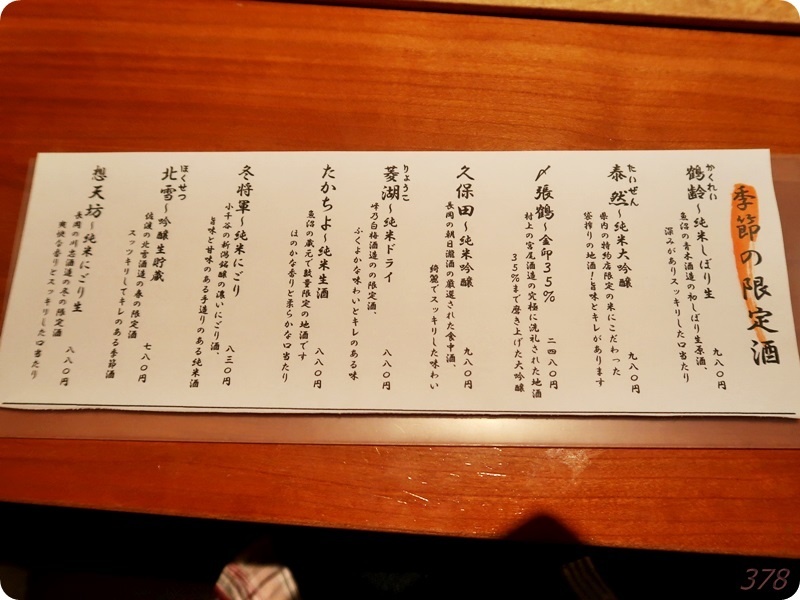 季節の限定酒
かくれい
鶴齢〜純米しぼり生
魚沼の青木酒造の初しぼり生原酒、
深みがありスッキリした口当たり
九八〇円
たいぜん
泰然〜純米大吟醸
県内の特約店限定の米にこだわった
袋搾りの地酒！旨味とキレがあります
九八〇円
〆張鶴〜金印35%
二四八〇円
村上の宮尾酒造の究極に洗礼された地酒
35%まで磨き上げた大吟醸
久保田〜純米吟醸
九八〇円
長岡の朝日酒造の厳選された食中酒、
綺麗でスッキリした味わい
りょうこ
菱湖〜純米ドライ
八八〇円
峰乃白梅酒造のの限定酒、
ふくよかな味わいとキレのある味
たかちよ〜純米生酒
八八〇円
魚沼の蔵元で数量限定の地酒です
ほのかな香りと柔らかな口当たり
冬将軍〜純米にごり
八三〇円
小千谷の新潟銘醸の濃いにごり酒、
旨味と甘味のある手造りのある純米酒
ほくせつ
北雪〜吟醸生貯蔵
七八〇円
佐渡の北雪酒造の春の限定酒
スッキリしてキレのある季節酒
想天坊〜純米にごり生
八八〇円
長岡の河忠酒造の冬の限定酒
爽快な香りとスッキリした口当たり
378